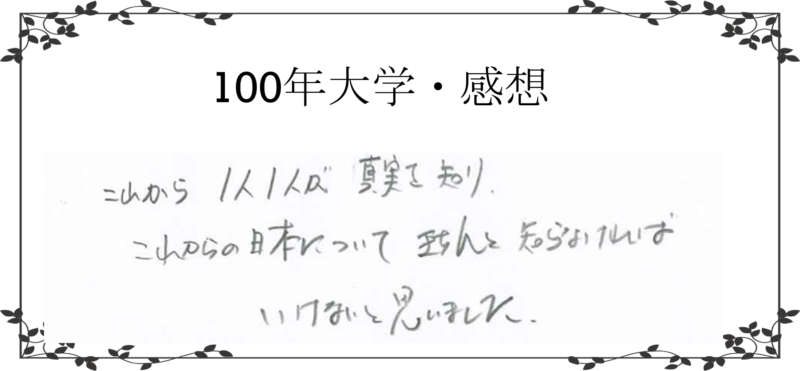 100年大学・感想
これから 1人1人が 真実を 知り、
これからの日本について きちんと 知らなければ
いけないと思いました.